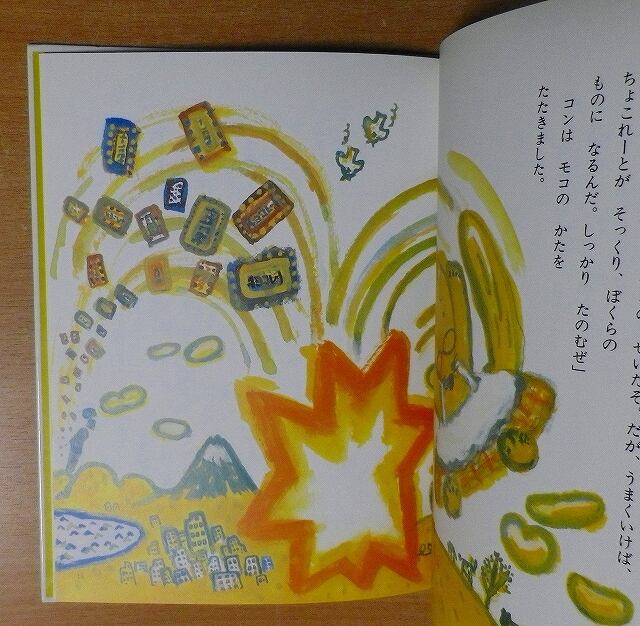 の せいだぞ。だが、うまくいけば、
ちょこれーとが そっくり、ぼくらの
ものに なるんだ。しっかり たのむぜ」
コンは モコの かたを
たたきました。